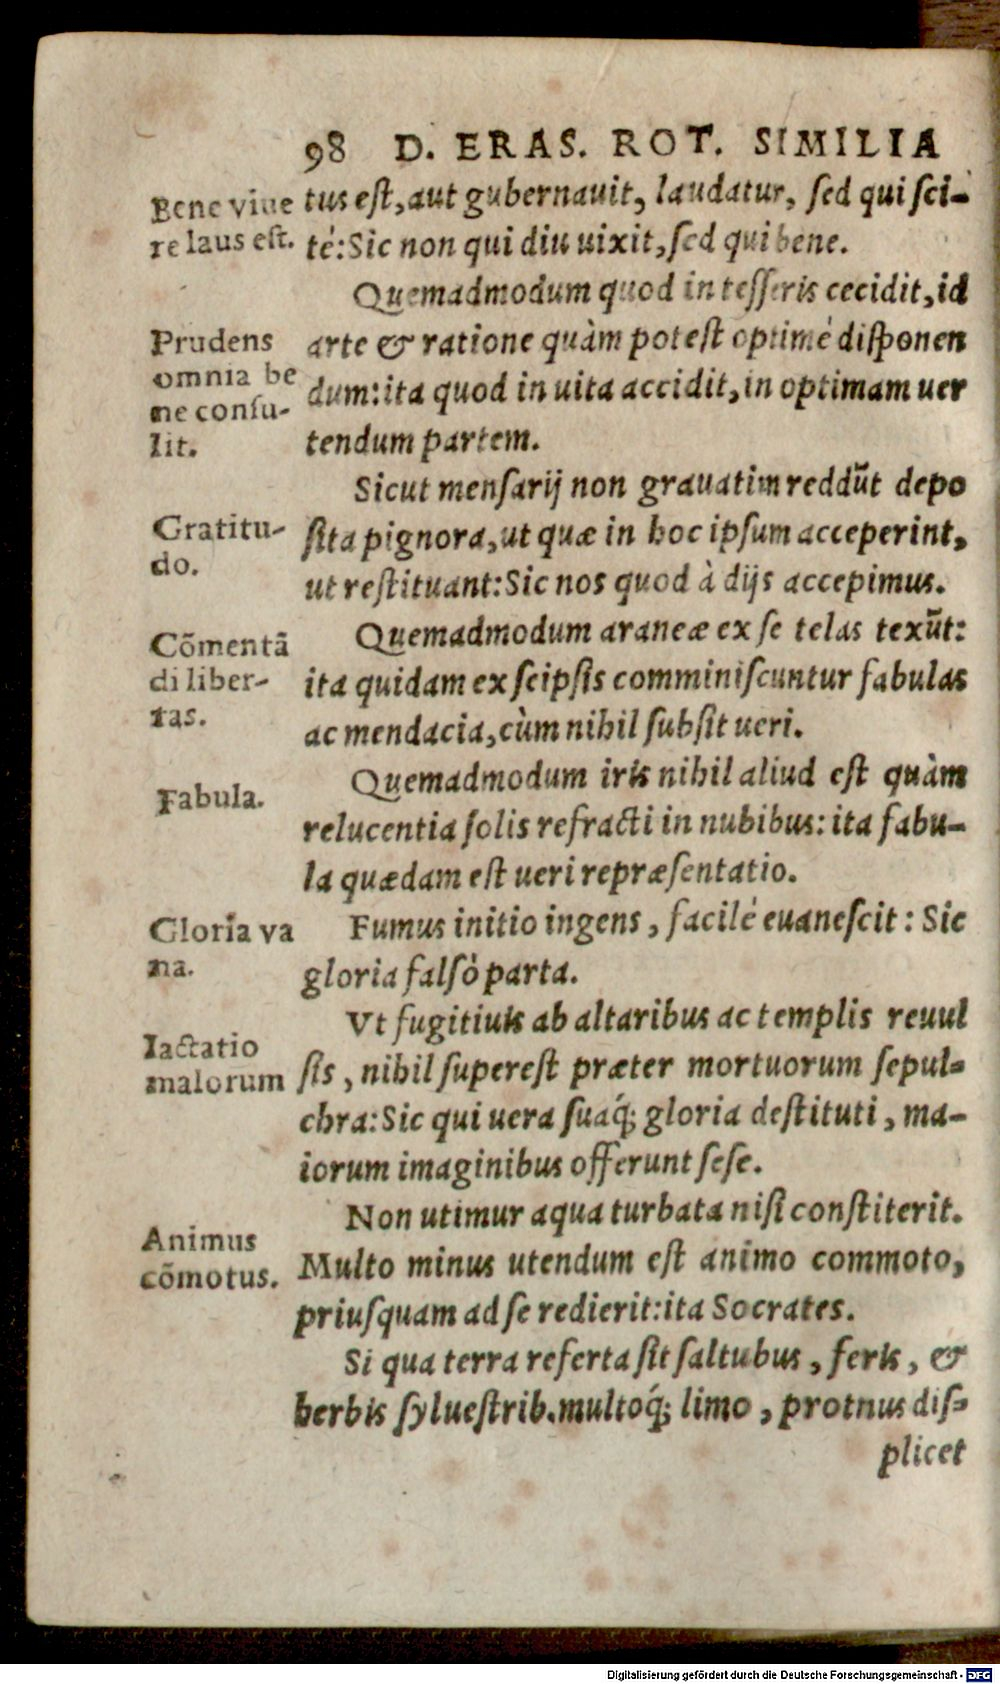 98 D. ERAS. ROT. SIMILIA
Bene viue
re laus est.
tus eſt, aut gubernauit, laudatur, ſed qui ſci-
tè: Sic non qui diu uixit, ſed qui bene.
Quemadmodum quod in teſſeris cecidit, id
Prudens
omnia be
ne conſu-
lit.
arte & ratione quàm poteſt optimè diſponen
dum: ita quod in uita accidit, in optimam uer
tendum partem.
Sicut menſarij non grauatim reddũt depo
Gratitu-
do.
ſita pignora, ut quæ in hoc ipſum acceperint,
ut reſtituant: Sic nos quod à dijs accepimus.
Quemadmodum araneæ ex ſe telas texũt:
Cõmentã
di liber-
tas.
ita quidam ex ſeipſis comminiſcuntur fabulas
ac mendacia, cùm nihil ſubſit ueri.
Quemadmodum iris nihil aliud eſt quàm
Fabula.
relucentia ſolis refracti in nubibus: ita fabu-
la quædam eſt ueri repræſentatio.
Gloria va
na.
Fumus initio ingens, facilè euaneſcit: Sic
gloria falſò parta.
Vt fugitiuis ab altaribus ac templis reuul
Iactatio
maiorum
ſis, nihil ſupereſt præter mortuorum ſepul-
chra: Sic qui uera ſuaq́; gloria deſtituti, ma-
iorum imaginibus offerunt ſeſe.
Non utimur aqua turbata niſi conſtiterit.
Animus
cõmotus.
Multo minus utendum eſt animo commoto,
priuſquam ad ſe redierit: ita Socrates.
Si qua terra referta ſit ſaltubus, feris, &
herbis ſylueſtrib. multoq́; limo, protnus diſ-
plicet
Digitalisierung gefördert durch die Deutsche Forschungsgemeinschaft - DFG